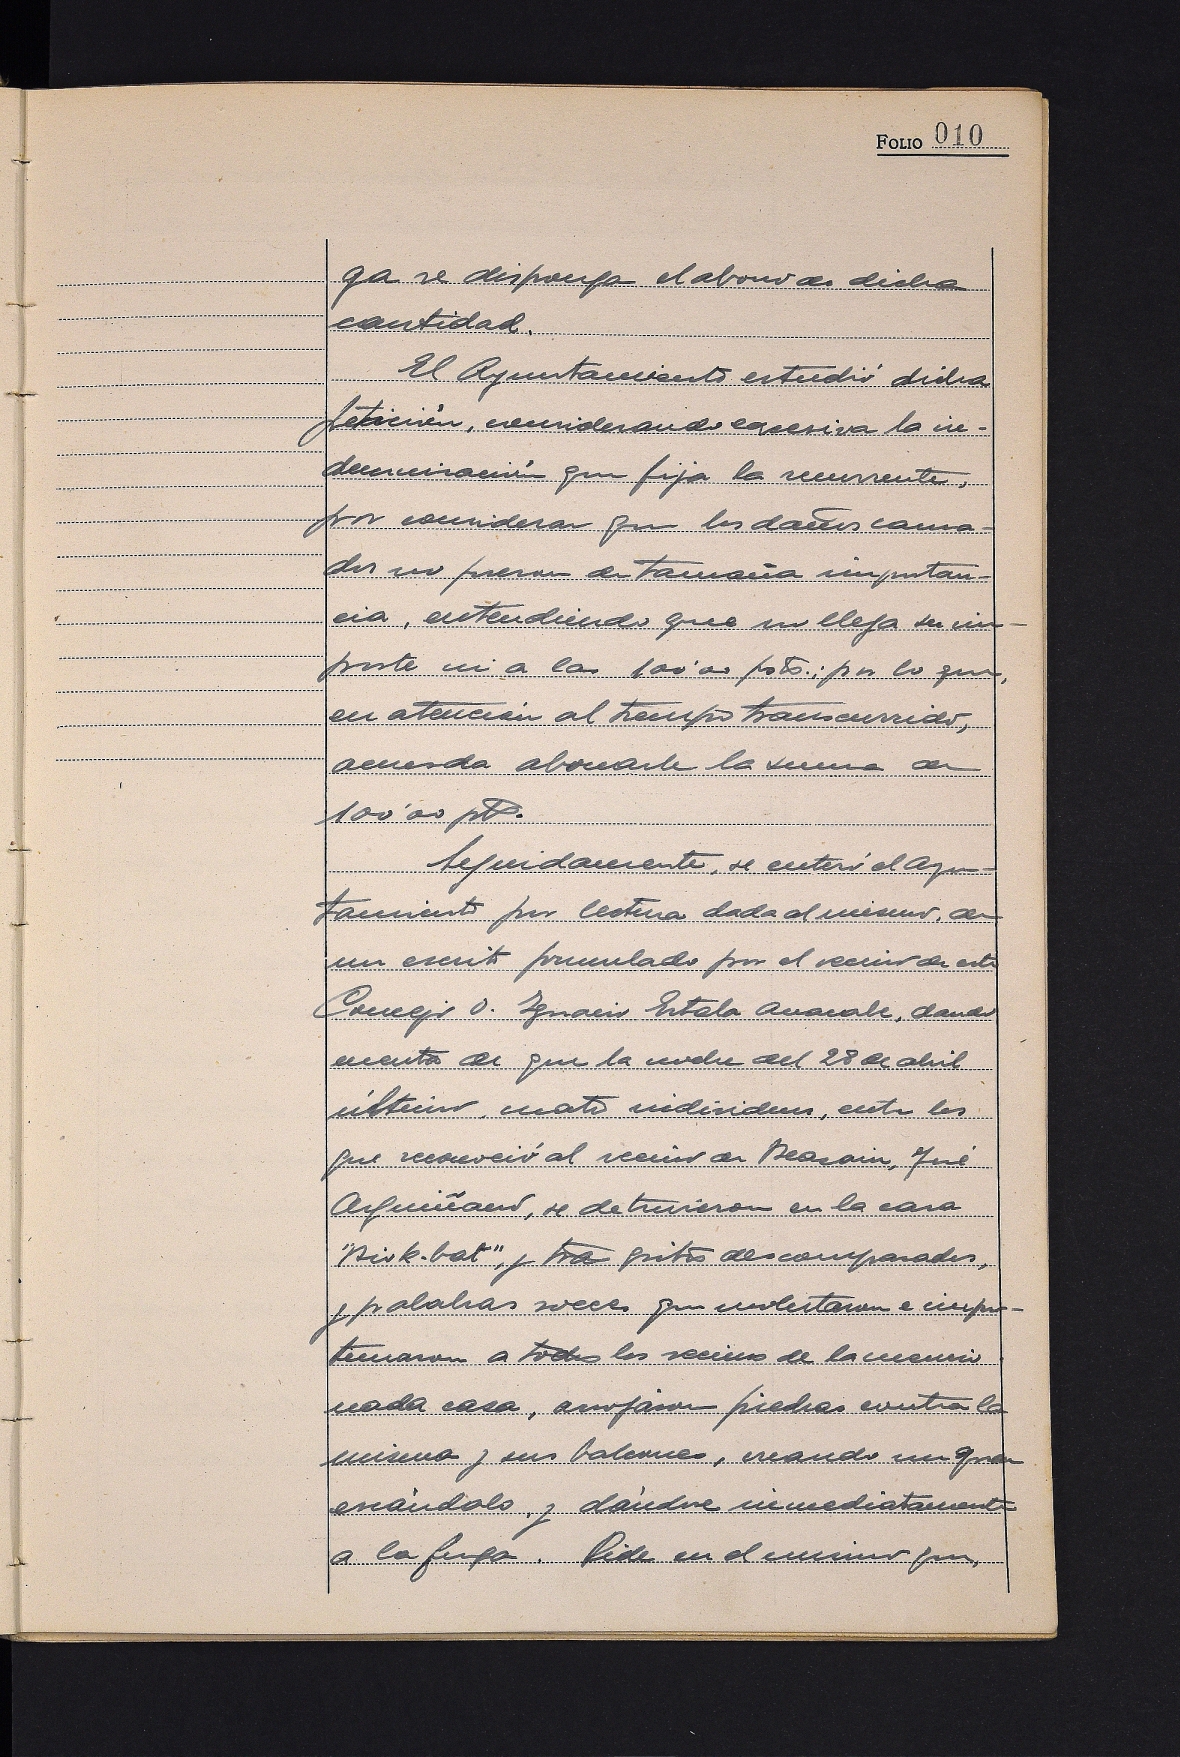 FOLIO 010
ga se disponga el abono de dicha
cantidad.
El Ayuntamiento estudió dicha
petición, considerando excesiva la in-
demnización que fija la recurrente,
por considerar que los daños causa-
dos no fueron de tamaña importan-
cia, entendiendo que no llega su im-
porte ni a las 100'00 pts.; por lo que,
en atención al tiempo transcurrido,
acuerda abonarle la suma de
100'00 pts.
Seguidamente, se enteró el Ayun-
tamiento por lectura dada al mismo, de
un escrito formulado por el vecino de este
Concejo D. Ignacio Estala, dando
cuenta de que la noche del 28 de abril
último, cuatro individuos, entre los
que reconoció al vecino de Beasain, José
Arguiñano, se detuvieron en la casa
y tra gritos descompasados,
y palabras soeces que molestaron e impor-
tunaron a todos los vecinos de la mencio
nada casa, arrojaron piedras contra la
misma y sus balcones, creando un gran
escándalo, y dándose inmediatamente
a la fuga. Pide en el mismo que,